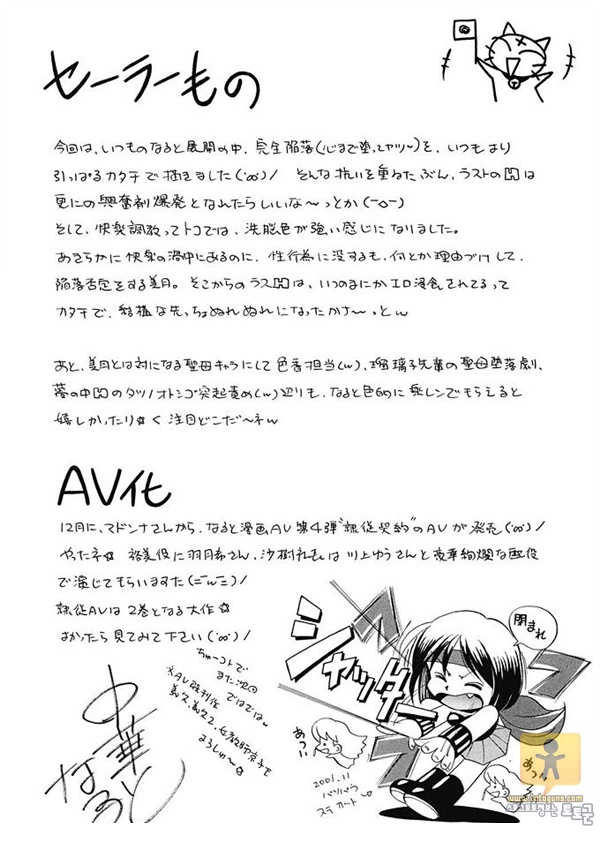 セーラーもの
今回は、いつものなると展開の中、完全陥落(心まで堕ちヤツ〜)を、いつもより
引っぱるカタチで描きました(`ω´)/ そんな抗いを重ねたぶん、ラストの□は
更にの興奮剤爆発となれたらしいいな〜っとか(ーoー)
そして、快楽調教ってトコでは、洗脳色が強い感じになりました。
あきらかに快楽の渦中にあるのに、性行為に没するも、何とか理由づけして、
陥落否定をする美月。そこからのラス□は、いつのまにかエロ浸食されてるって
カタチで、結構な先っちょぬれぬれになったかさ〜っとw
あと、美月とは対になる聖母キャラにして色香担当(w)、瑠璃子先輩の聖母堕落劇、
夢の中□のタツノオトシゴ突起責め(w)辺りも、なると色的に楽しンでもらえると
嬉しかったり☆く 注目どこだ〜ネw
AV化
12月に、マドンナさんから、なると漫画AV第4弾"隷従契約"のAVが発売(`ω´)/
やったネ☆ 裕美役に羽月希さん、沙樹役は川上ゆうさんと豪華絢爛な配役
で演じてもらいますた(ニwニ)/
隷従AVは2巻となる大作☆
よかったら見てみて下さい(`ω´)/
ちゅーコトで
また次回
ではでは〜
※AV既刊作
よろしゅ〜☆
中華
なると
シャッター
閉まれ
あつい
あつい
2001.11
バツバツ
スチカート
www.totoguns.com
토토군